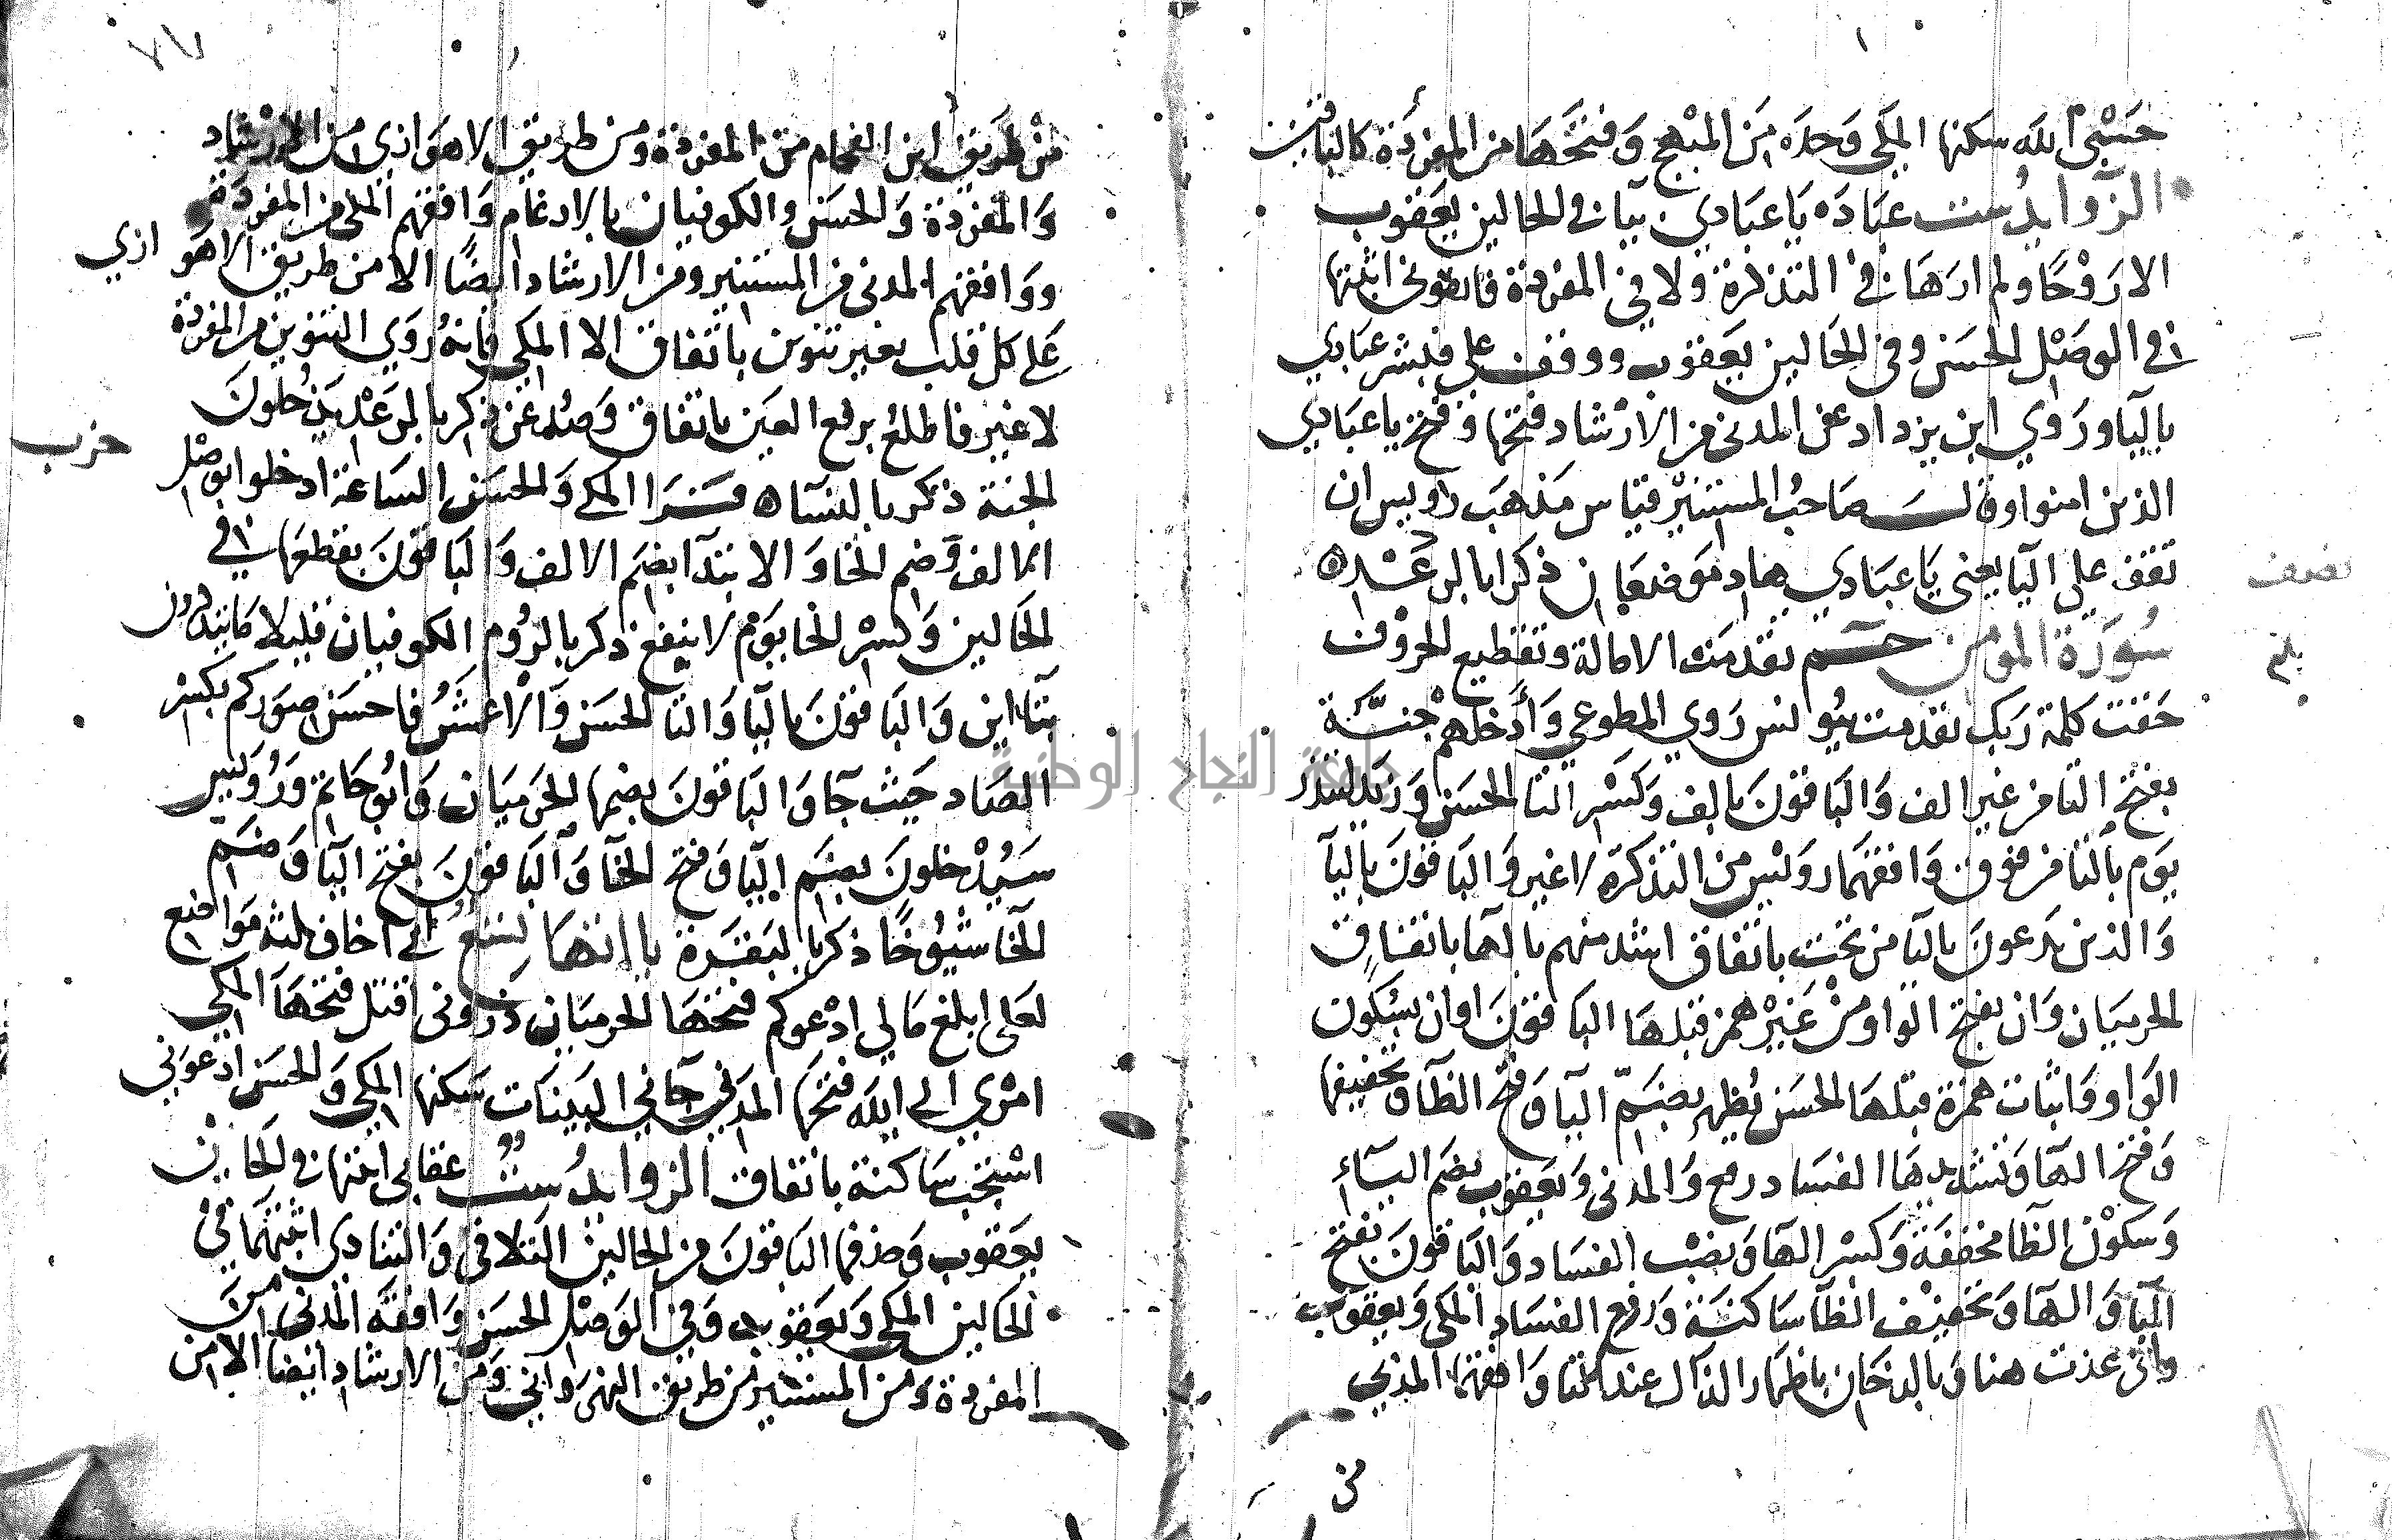 حَسْبِيَ الله سكنها المكي وَحدَه مِنَ المبْهج وَفتحَهَا من المفرَدَة كالباقين
الزَّوايدُ ست عبَادَه يَا عبَادي بيآ في الحالين يعقوب
الا رَوْحًا ولم ارَهَا في التذكرة ولا في المفردة فاتقوني اثبتها
في الوصْل الحسَن وفي الحَالين يَعقوب ووقف على فبشر عبَادي
باليآ وروي ابن يزداد عن المدني من الارْشاد فتحها وفتح يا عبَادي
الذين امنوا وقال صَاحبُ المستنير قياس مَذهَب رويس ان
تقف على اليآ يعني يَا عبَادي
نصف
سُورَة المومن حم تقدمت الامالة وتقطيع الحروف
بلغ
حَقت كلمة ربك تقدمت بيُونس رَوي المطوعي وَأدخلهم جنَّة
بفتح التا من غير الف وَالبَاقونَ بالف وَكسْر التا الحسَن وَرَيد لتنذر
يوَم بالتا من فوق وَافقهمَا رويس من التذكرة لا غير وَالبَاقونَ باليآ
وَالذين يدعونَ باليآ من تحت باتفاق اشد منهم بالهآ باتفاق
الحرميَان وَان بفتح الواو منْ غَيْر همز قبلهَا البَاقونَ اوان بسُكون
الوَاو وَاثبات همزة قبلهَا الحسَن يُظهر بضمّ اليآ وَفتح الظآ وتخفيفها
وَفتح الهآ وَتشديدهَا الفسَاد رفع وَالمدني وَيعقوب بضم اليآ
وَسكوْن الظآ مخففَة وَكسْر الهآ وَنصْب الفسَاد وَالبَاقونَ بفتح
اليآ وَالهآ وَتخفيف الظآ سَاكنَة وَرفع الفسَاد المكي وَيعقوب
واني عذت هنا وَبالدخَان باظهار الذال عند التا وَافقهما المدني
من
منْ طريق ابن الفحام من المفردة ومن طريق الاهوَازي من الارْشاد
وَالمفردة وَالحسَن وَالكوفيان بالادغام وَافقهم المكي من المفردَة
ووَافقهم المدني من المستنير ومن الارشاد ايضًا الا من طريق الاهَوازي
عَلى كل قلب بغير تنوين باتفاق الا المكي فانهُ رَوي التنوين من المفردة
لا غير فاطلعُ برفع العَين باتفاق وَصُد عَن ذكر بالرعْد يدْخلونَ
حزب
الجنة ذكر بالنسآء قرا المكي وَالحسَن السَاعة ادخلوا بوصْل
الالف وَضم الخا وَالابتدآ بضم الالف وَالبَاقونَ بقطعهَا في
الحَالين وَكسْر الخا يوَم لا ينفع ذكر بالرُوم الكوفيان قليلا مَا تتذكرون
بتاءين وَالبَاقونَ باليآ وَالتا الحسَن وَالاعمَش فاحسَن صوَركم بكسْر
الصَاد حَيث جآ وَالبَاقونَ بضمها الحرَميَان وَابُو حَاتم وَرُوَيس
سَيُدْخلونَ بضم اليآ وَفتح الخآ وَالبَاقونَ بفتح اليآ وَضم
الخا شيُوخًا ذكر بالبَقرَة ياآتها تسْع اني اخاف ثلثه مَوَاضع
لعَلى ابلغ مَا لي ادْعوكم فتحَهَا الحرميَان ذرُوني اقتل فتحهَا المكي
امْري الي الله فتحَهَا المدني جآني البينَات سَكنهَا المكي وَالحسَن ادعوني
اسْتجب سَاكنة باتفاق الزوايدُ ستٌ عقابي اثبتها في الحَالين
يعَقوب وَحذفها البَاقونَ من الحالين التلاقي وَالتنادي اثبتهمَا في
الحَالين المكي وَيعَقوب وَفي الوَصْل الحسَن وَافقَه المدني منَ
المفردة وَمن المستنير من طريق النهرَوَاني وَمن الارشاد ايضا الا من
جامعة النجاح الوطنية